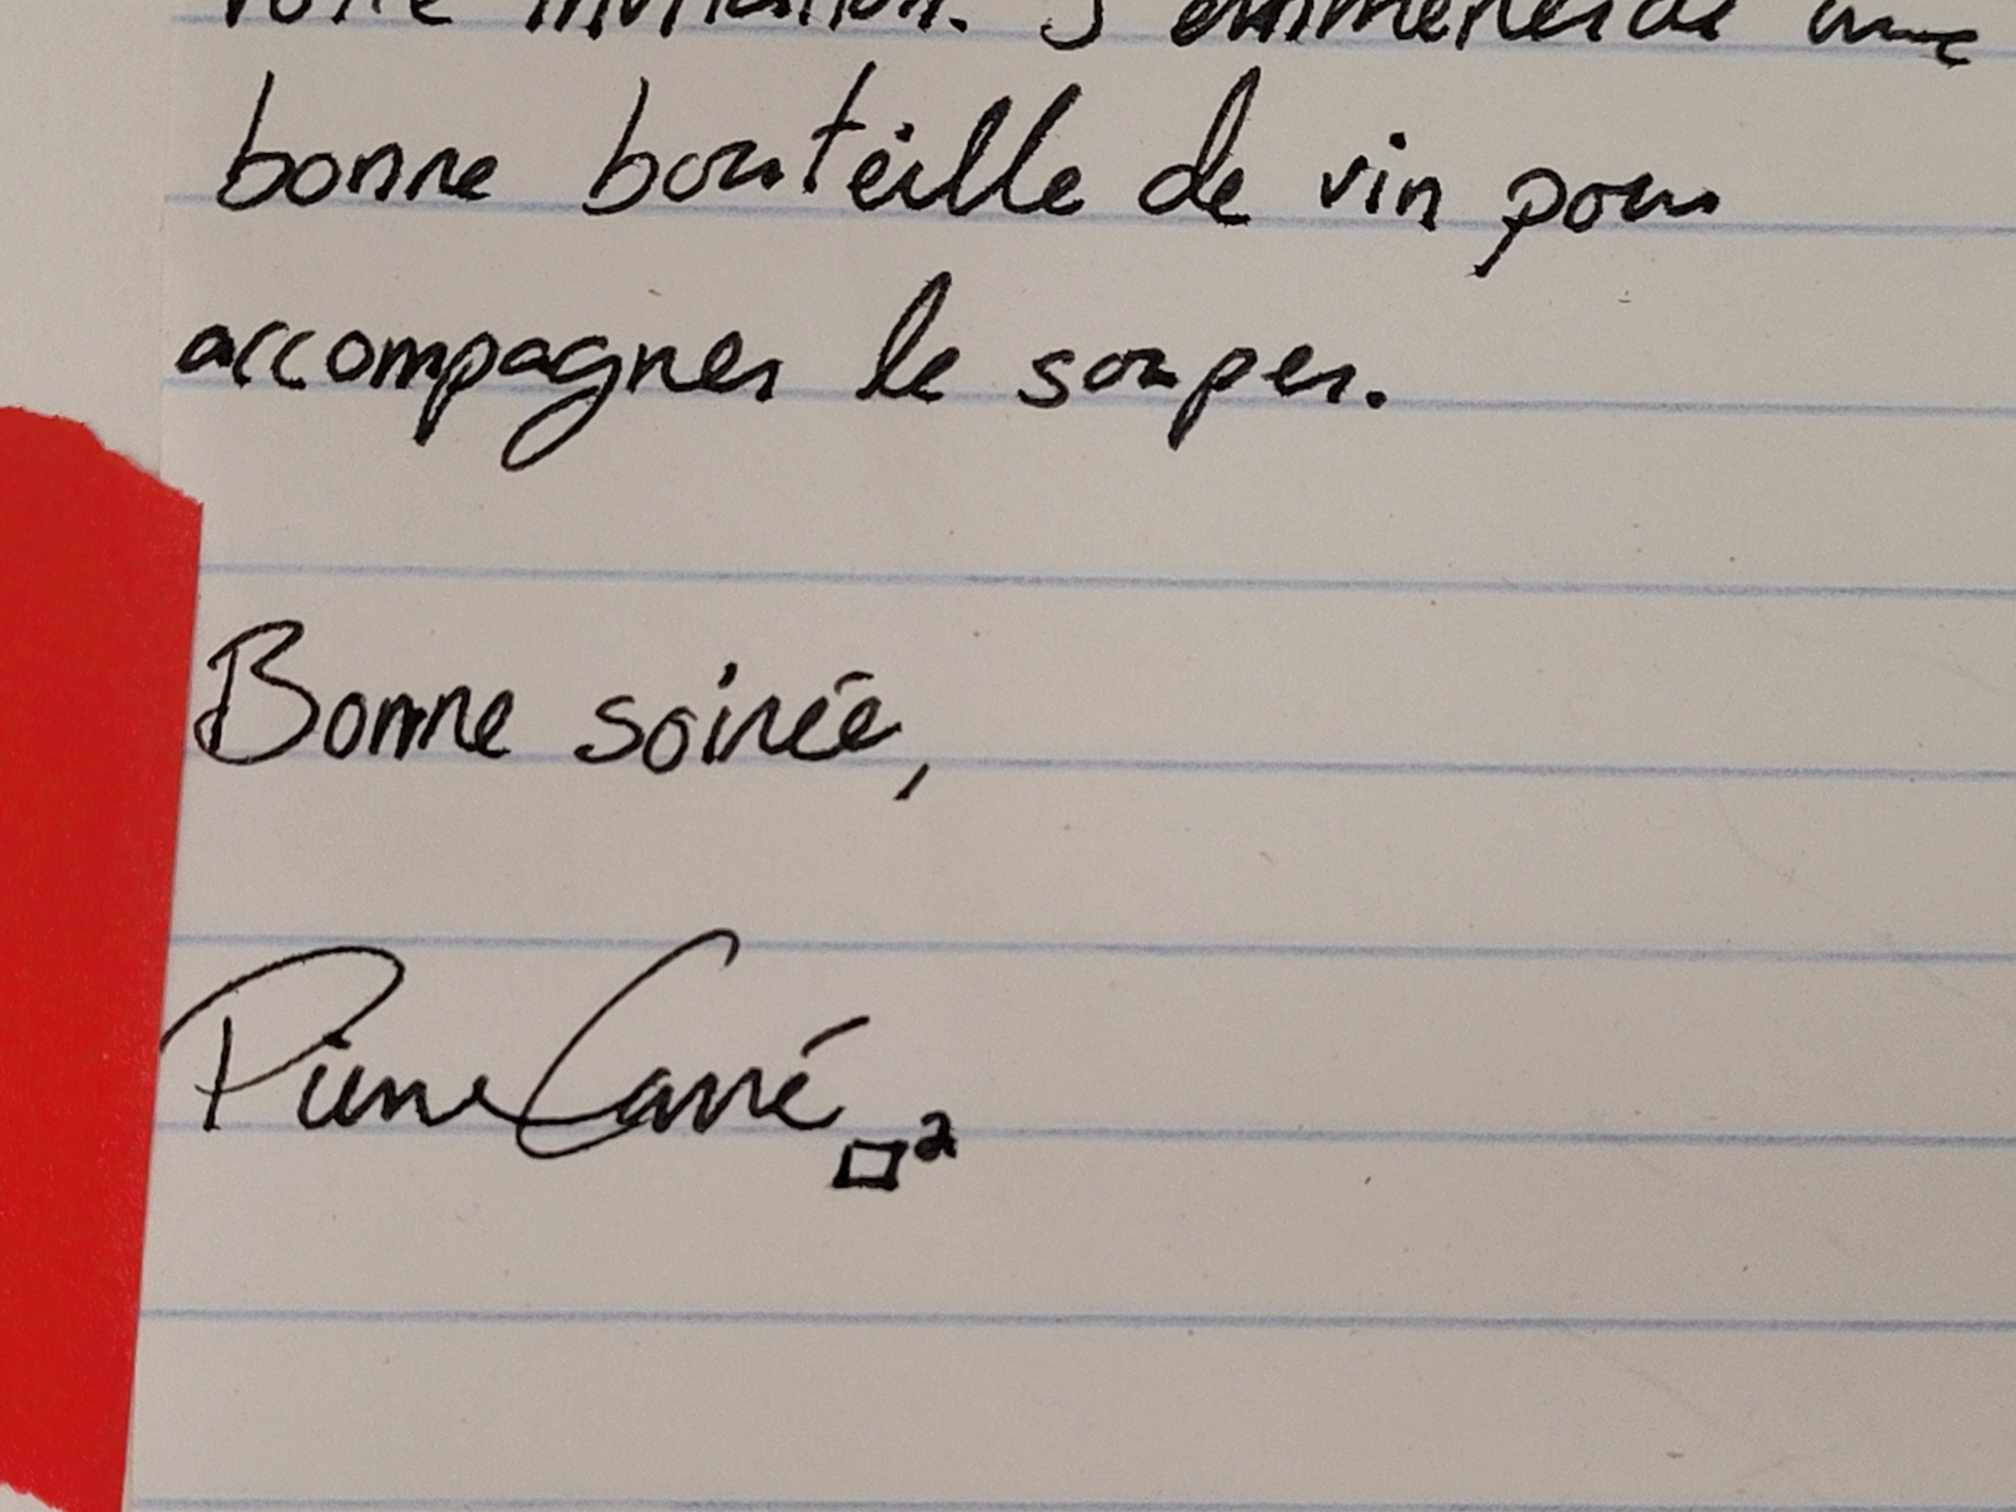 votre invitation. J'emmènerai une
bonne bouteille de vin pour
accompagner le souper.
Bonne soirée,
Pierre Carré □²